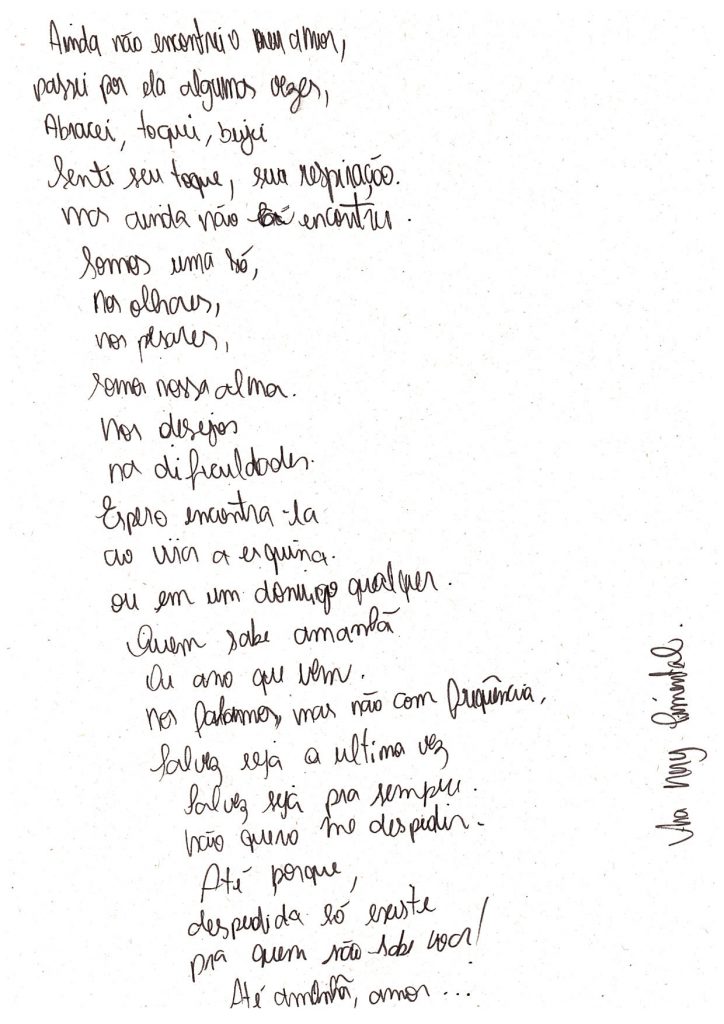 Ainda não encontrei o meu amor,
passei por ela algumas vezes,
Abracei, toquei, beijei
Senti seu toque, sua respiração.
mas ainda não encontrei.
Somos uma só,
nos olhares,
nos pesares,
somos nossa alma.
Nos desejos
na dificuldades.
Espero encontra-la
ao virar a esquina.
ou em um domingo qualquer.
Quem sabe amanhã
Ou ano que vem.
Nos falamos, mas não com frequência,
Talvez seja a ultima vez
Talvez seja pra sempre.
Não quero me despedir.
Até porque,
despedida só existe
pra quem não sabe voar!
Até amanhã, amor...
Ana Nery Pimentel.